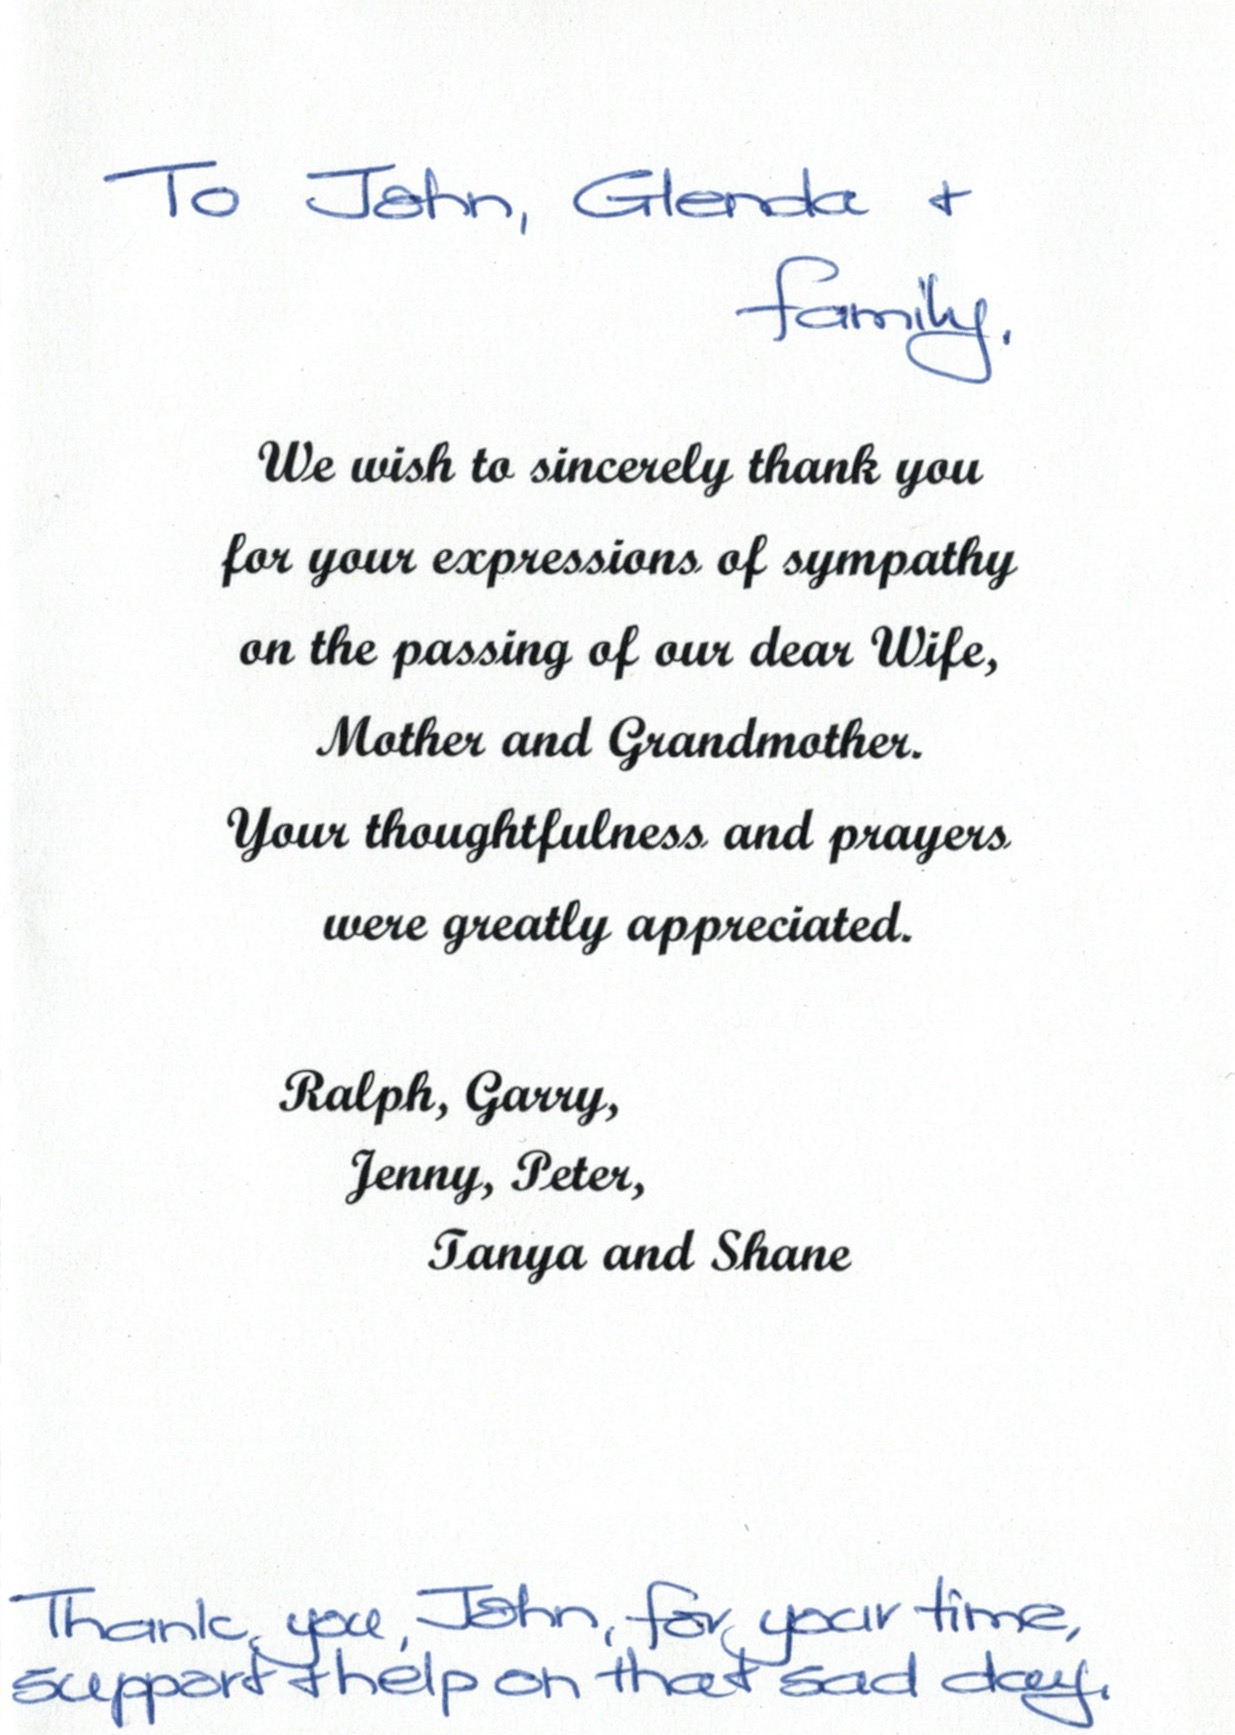 To John, Glenda +
family.
We wish to sincerely thank you
for your expressions of sympathy
on the passing of our dear Wife,
Mother and Grandmother.
Your thoughtfulness and prayers
were greatly appreciated.
Ralph, Garry,
Jenny, Peter,
Tanya and Shane
Thank you, John, for your time,
support + help on that sad day.